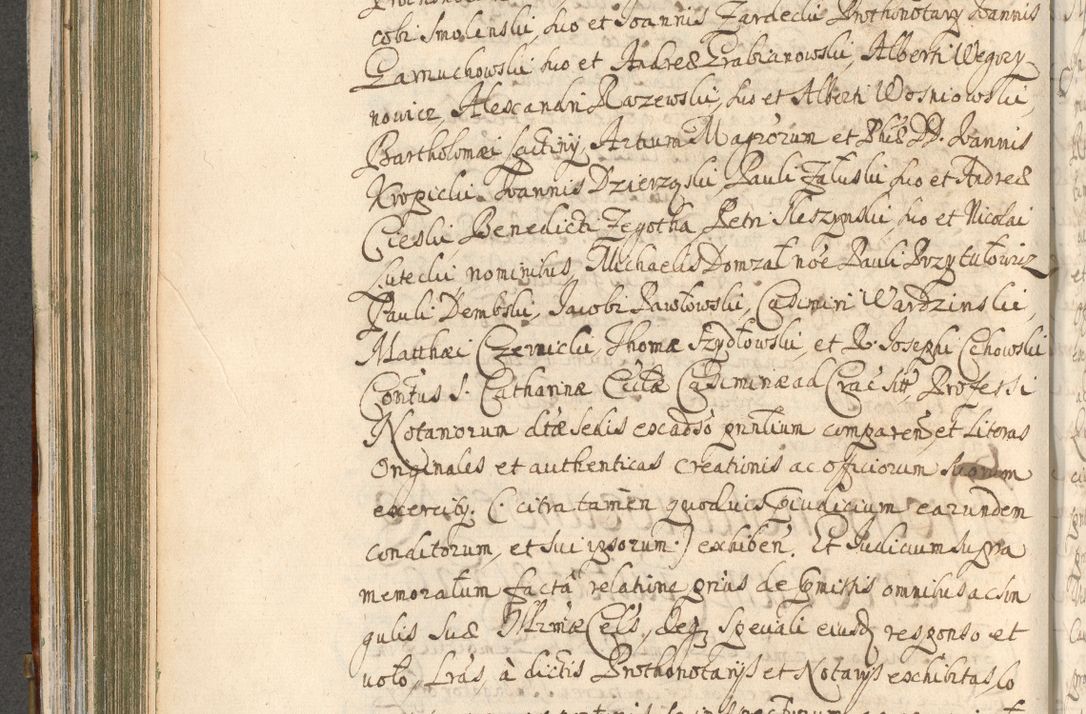 cobi Smolenski, suo et Joannis Zardecki Prothonotary Joannis
Garnuchowski suo et Andreæ Grabianowski, Alberti Wegrzy-
nowicz, Alexandri Raszewski, suo et Alberti Wosniowski,
Bartholomæi Lactiny, Artium Magrorum et Phiæ DD. Joannis
Kropicki, Joannis Dzierzgski Pauli Załuski suo et Andreæ
Cieski Benedicti Zegotka Petri Sleszynski suo et Nicolai
Lutecki nominibus, Michaelis Domzał noe Pauli Przytułowicz
Pauli Dembski, Jacobi Pawłowski, Casimiri Wardzinski,
Matthæi Czernicki Thomæ Szydłowski, et R. Josephi Cehowski
Contus S. Catharinæ Ecclæ Casiminæ ad Crac sitt, Professi
Notariorum dtæ sedis ex adso pnntium comparen, et Literas
Originales et authenticas creationis ac officiorum suorum
exercity. (: citra tamen quoduis pjudicium earundem
conditorum, et sui ipsorum :) exhiben. Et Judicium supra
memoratum facta relatione prius de pmissis omnibus ac sin
gulis Suæ Illrmæ Cels, deq speciali eiusd responso et
voto, Lras, à dictis Prothonotarijs et Notarijs exhibitas, co